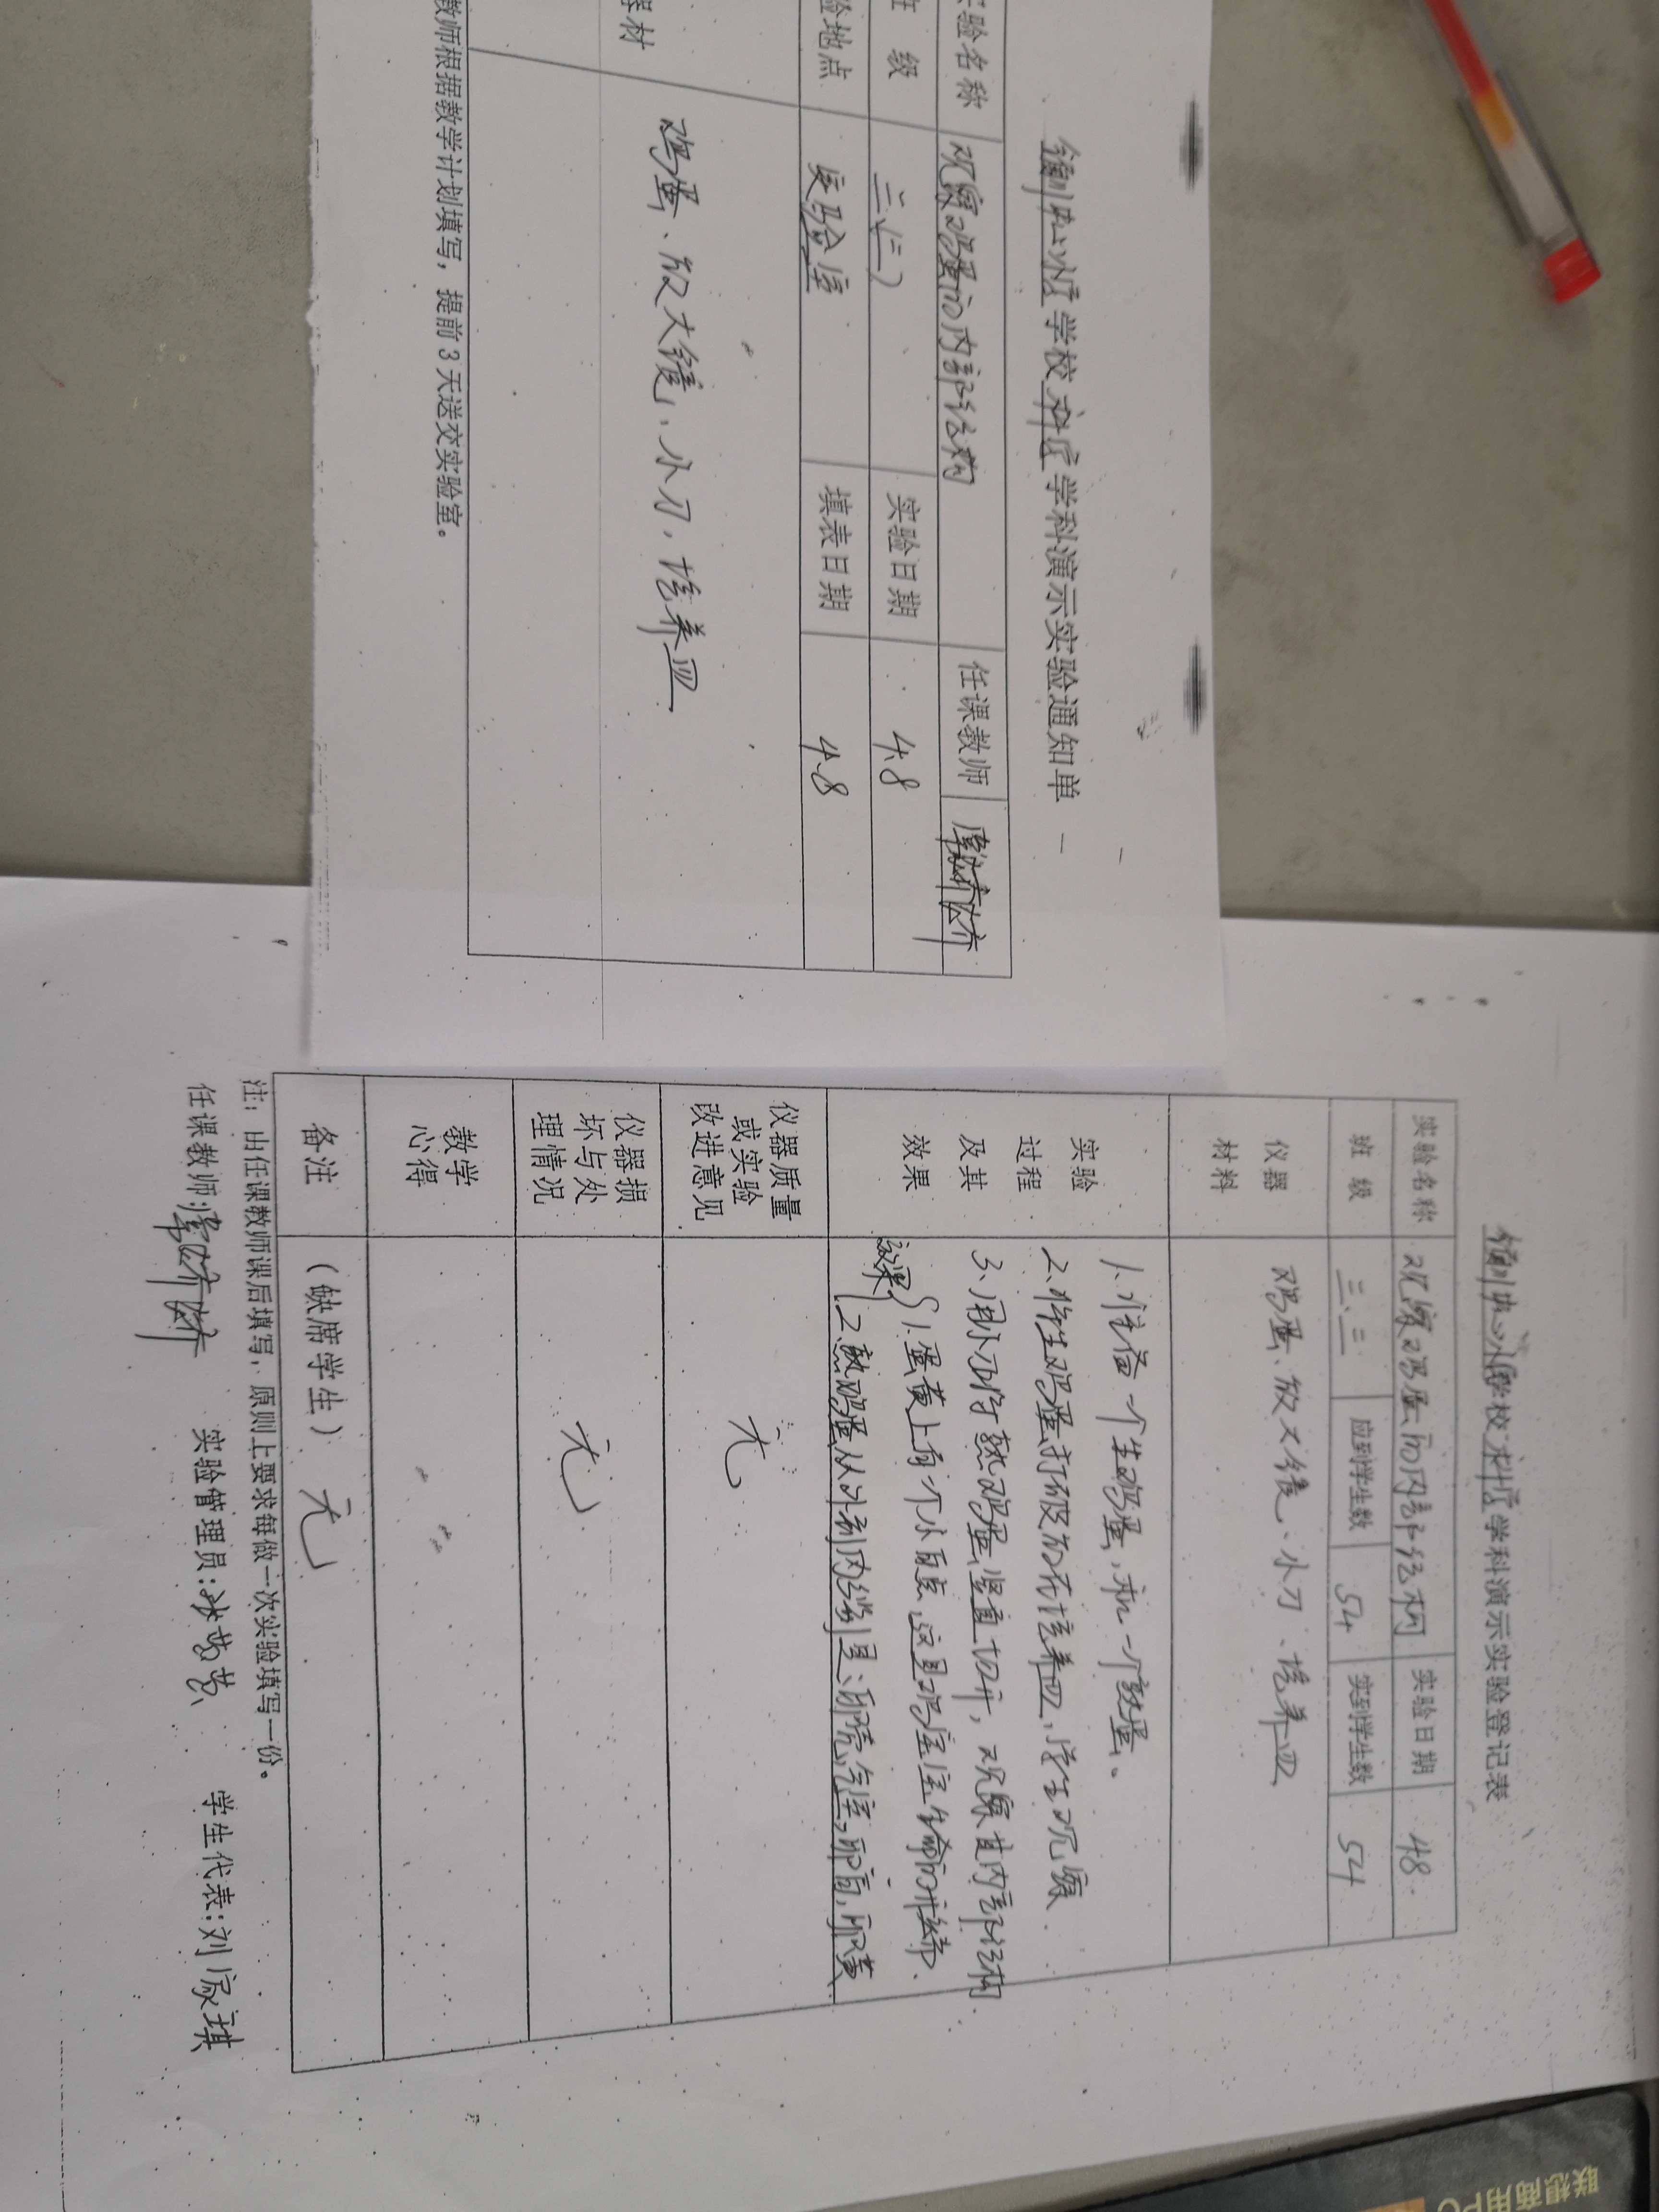 学校科学学科演示实验通知单
验名称 观察鸡蛋的内部结构 任课教师
级 三(三) 实验日期 4.8
验地点 实验室 填表日期 4.8
器材 鸡蛋、放大镜、小刀、培养皿
教师根据教学计划填写，提前3天送交实验室。
学校科学学科演示实验登记表
实验名称 观察鸡蛋的内部结构 实验日期 4.8
班级 三.三 应到学生数 54 实到学生数 54
仪器
材料 鸡蛋、放大镜、小刀、培养皿
实验
过程
及其
效果
1.准备一个生鸡蛋,和一个熟蛋.
2.将生鸡蛋打破放在培养皿,学生观察.
3.用小刀将熟鸡蛋竖直切开,观察其内部结构.
效果 1.蛋黄上有个小白点,这是鸡宝宝生命的开始.
2.熟鸡蛋从外到内分别是:卵壳,气室,卵白,卵黄
仪器质量
或实验
改进意见 无
仪器损
坏与处
理情况 无
教学
心得
备注 (缺席学生) 无
注：由任课教师课后填写，原则上要求每做一次实验填写一份。
任课教师: 实验管理员: 学生代表:刘家琪
联想商用PC